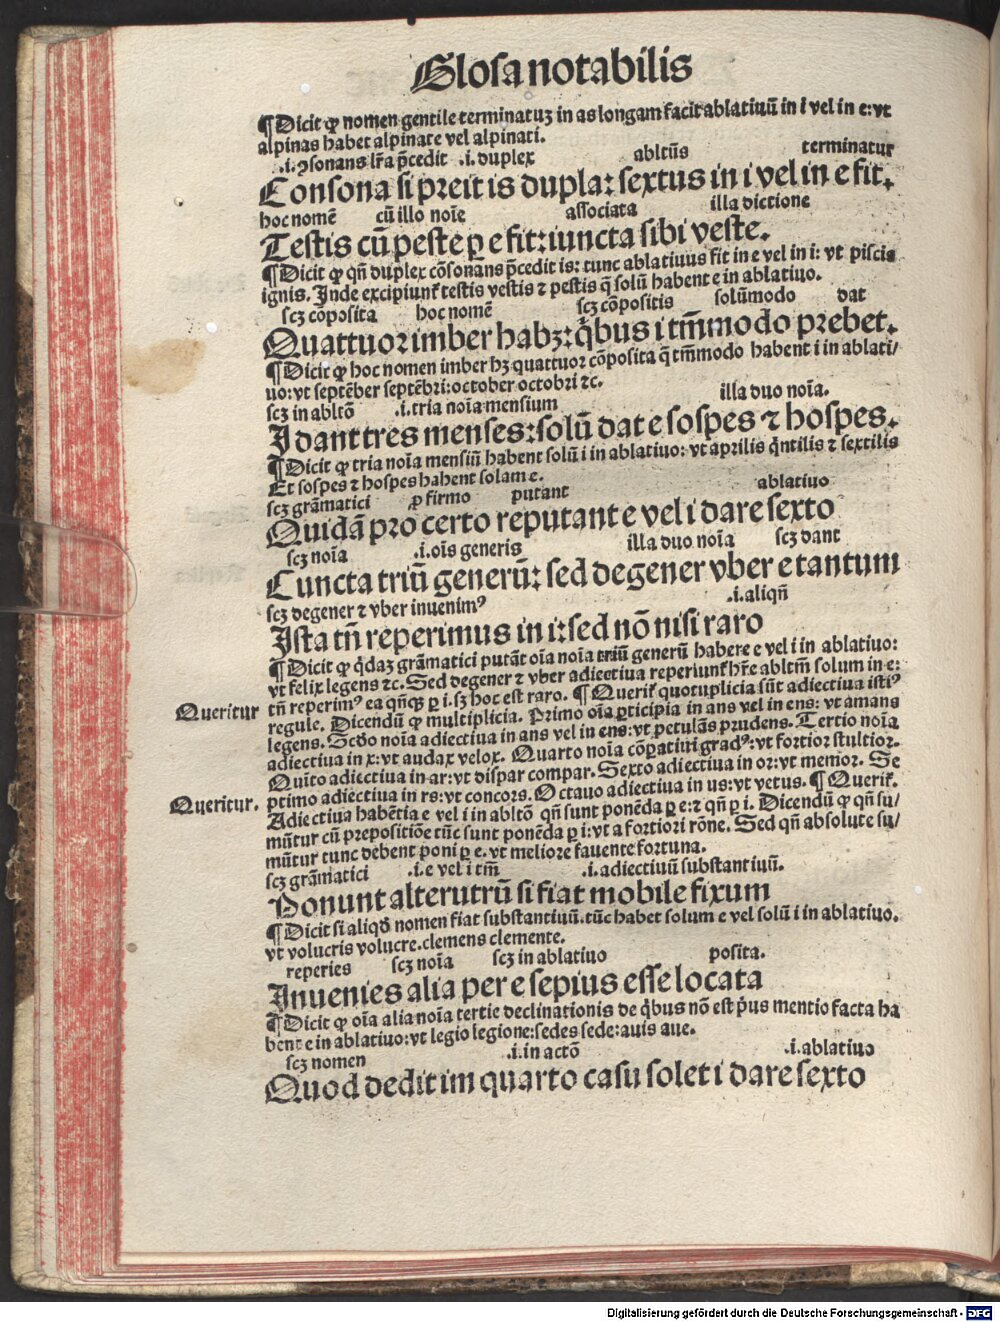 Glosa notabilis
¶ Dicit ꝙ nomen gentile terminatuꝫ in as longam facit ablatiuū in i vel in e: vt
alpinas habet alpinate vel alpinati.
.i. ꝯsonans lr̄a p̄cedit .i. duplex abltūs terminatur
Consona si preit is dupla: sextus in i vel in e fit.
hoc nomē cū illo noīe associata illa dictione
Testis cū peste ꝑ e fit: iuncta sibi veste.
¶ Dicit ꝙ qn̄ duplex cōsonans p̄cedit is: tunc ablatiuus fit in e vel in i: vt piscis
ignis. Inde excipiunt᷑ testis vestis ⁊ pestis q̄ solū habent e in ablatiuo.
scꝫ cōposita hoc nomē scꝫ cōpositis solūmodo dat
Quattuor imber habꝫ: q̄bus i tm̄modo prebet.
¶ Dicit ꝙ hoc nomen imber hꝫ quattuor cōposita q̄ tm̄modo habent i in ablati/
uo: vt septēber septēbri: october octobri ⁊c.
scꝫ in abltō .i. tria noīa mensium illa duo noīa.
I dant tres menses: solū dat e sospes ⁊ hospes.
¶ Dicit ꝙ tria noīa mensiū habent solū i in ablatiuo: vt aprilis q̄ntilis ⁊ sextilis
Et sospes ⁊ hospes habent solam e.
scꝫ grāmatici ꝓ firmo putant ablatiuo
Quidā pro certo reputant e vel i dare sexto
scꝫ noīa .i. oīs generis illa duo noīa scꝫ dant
Cuncta triū generū: sed degener vber e tantum
scꝫ degener ⁊ vber inuenimꝰ .i. aliqn̄
Ista tn̄ reperimus in i: sed nō nisi raro
¶ Dicit ꝙ q̄daꝫ grāmatici putāt oīa noīa triū generū habere e vel i in ablatiuo:
vt felix legens ⁊c. Sed degener ⁊ vber adiectiua reperiunt᷑ hr̄e abltm̄ solum in e:
Queritur tn̄ reperimꝰ ea qn̄qꝫ ꝑ i. sꝫ hoc est raro. ¶ Querit᷑ quotuplicia sūt adiectiua istiꝰ
regule. Dicendū ꝙ multiplicia. Primo oīa ꝑticipia in ans vel in ens: vt amans
legens. Scdo noīa adiectiua in ans vel in ens: vt petulās prudens. Tertio noīa
adiectiua in x: vt audax velox. Quarto noīa cōparatiui gradꝰ: vt fortior stultior.
Quīto adiectiua in ar: vt dispar compar. Sexto adiectiua in or: vt memor. Se
Queritur. ptimo adiectiua in rs: vt concors. Octauo adiectiua in us: vt vetus. ¶ Querit᷑.
Adiectiua habētia e vel i in abltō qn̄ sunt ponēda ꝑ e: ⁊ qn̄ ꝑ i. Dicendū ꝙ qn̄ su/
mūtur cū prepositiōe tūc sunt ponēda ꝑ i: vt a fortiori rōne. Sed qn̄ absolute su/
mūtur tunc debent poni ꝑ e. vt meliore fauente fortuna.
scꝫ grāmatici .i. e vel i tm̄ .i. adiectiuū substantiuū.
Ponunt alterutrū si fiat mobile fixum
¶ Dicit si aliqđ nomen fiat substantiuū. tūc habet solum e vel solū i in ablatiuo.
vt volucris volucre. clemens clemente.
reperies scꝫ noīa scꝫ in ablatiuo posita.
Inuenies alia per e sepius esse locata
¶ Dicit ꝙ oīa alia noīa tertie declinationis de q̄bus nō est p̄us mentio facta ha
bent e in ablatiuo: vt legio legione: sedes sede: auis aue.
scꝫ nomen .i. in actō .i. ablatiuo
Quod dedit im quarto casu solet i dare sexto
Digitalisierung gefördert durch die Deutsche Forschungsgemeinschaft - DFG